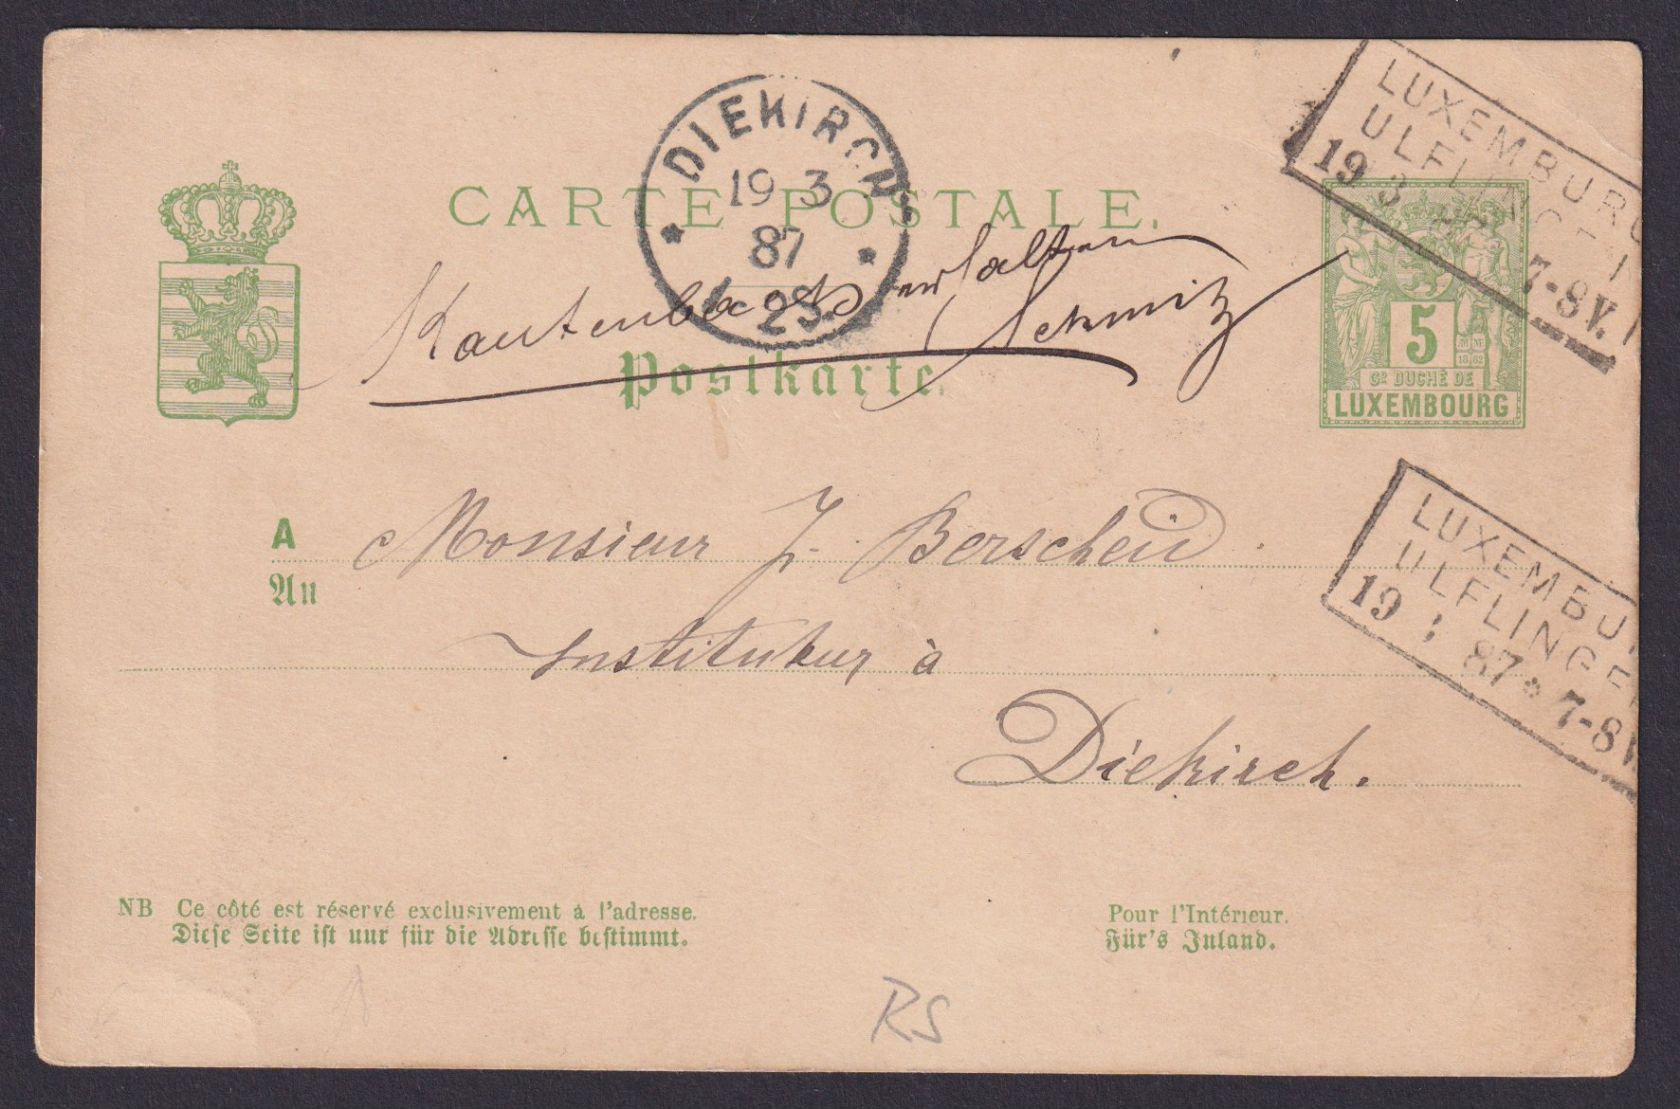 CARTE POSTALE.
Postkarte.
DIEKIRCH
19 3
87
Kautenbach erhalten
Schmitz
LUXEMBURG
ULFLINGEN
19 3 87 7-8V.
5
GD DUCHÉ DE
LUXEMBOURG
A
An
Monsieur J. Berscheid
Instituteur à
Diekirch.
LUXEMBU
ULFLINGE
19 87 * 7-8V
NB Ce côté est réservé exclusivement à l'adresse.
Diese Seite ist nur für die Adresse bestimmt.
Pour l'Intérieur.
Für's Inland.
RS